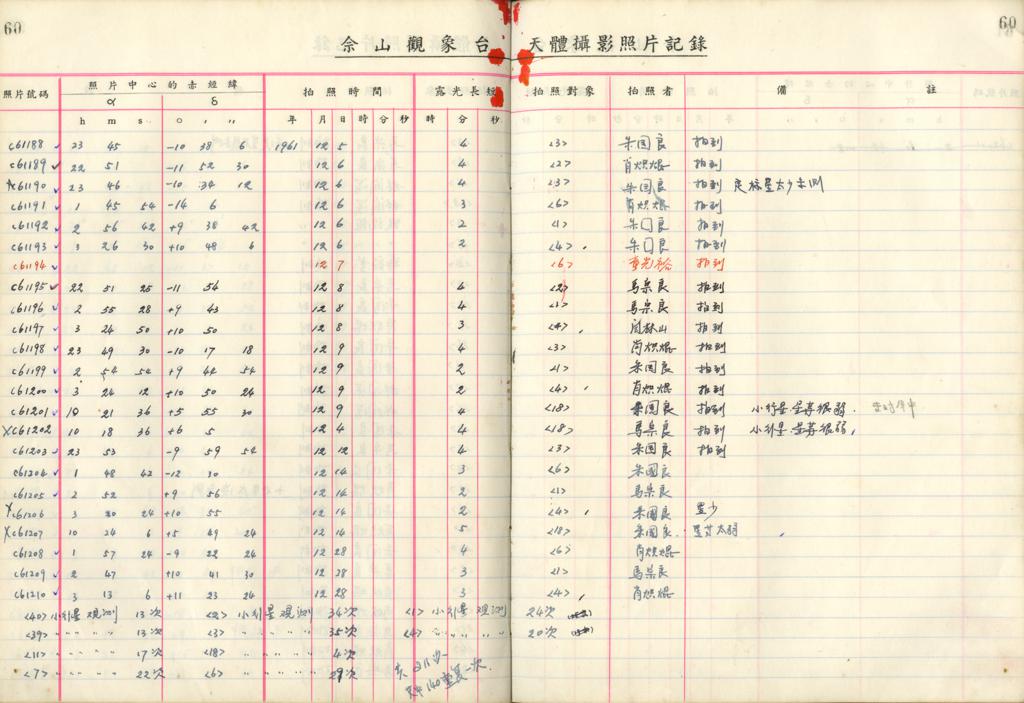 60
60
佘山觀象台 天體攝影照片記錄
照片號碼 照片中心的赤經緯 拍照時間 露光長短 拍照對象 拍照者 備註
α δ
h m s ° ′ ″ 年 月 日 時 分 秒 時 分 秒
c61188 23 45 -10 38 6 1961 12 5 4 <3> 朱国良 拍到
c61189 22 51 -11 52 30 12 6 4 <2> 肖炽焜 拍到
c61190 23 46 -10 34 12 12 6 4 <3> 朱国良 拍到 定标星太少未测
c61191 1 45 54 -14 6 12 6 3 <6> 肖炽焜 拍到
c61192 2 56 42 +9 38 42 12 6 2 <1> 朱国良 拍到
c61193 3 26 30 +10 48 6 12 6 2 <4> 朱国良 拍到
c61194 12 7 <6> 拍到
c61195 22 51 25 -11 54 12 8 4 <2> 馬杲良 拍到
c61196 2 55 28 +9 43 12 8 4 <1> 馬杲良 拍到
c61197 3 24 50 +10 50 12 8 3 <4> 闵林山 拍到
c61198 23 49 30 -10 17 18 12 9 4 <3> 肖炽焜 拍到
c61199 2 54 54 +9 44 54 12 9 2 <1> 朱国良 拍到
c61200 3 24 12 +10 50 24 12 9 2 <4> 肖炽焜 拍到
c61201 10 21 36 +5 55 30 12 9 4 <18> 朱国良 拍到 小行星星等很弱.
×c61202 10 18 36 +6 5 12 4 4 <18> 馬杲良 拍到 小行星星等很弱,
c61203 23 53 -9 59 54 12 12 4 <3> 朱国良 拍到
c61204 1 48 42 -12 30 12 14 3 <6> 朱国良
c61205 2 52 +9 56 12 14 2 <1> 馬杲良
×c61206 3 20 24 +10 55 12 14 2 <4> 朱国良 星少
×c61207 10 24 6 +5 49 24 12 14 5 <18> 朱国良 星等太弱
c61208 1 57 24 -9 22 24 12 28 4 <6> 肖炽焜
c61209 2 47 +10 41 30 12 28 3 <1> 馬杲良
c61210 3 13 6 +11 23 24 12 28 3 <4> 肖炽焜
<40> 小行星观测 13次 <2> 小行星观测 34次 <1> 小行星观测 24次
<39> 〃 〃 〃 〃 13次 <3> 〃 〃 〃 〃 35次 <4> 〃 〃 〃 〃 20次
<11> 〃 〃 〃 〃 17次 <18> 〃 〃 〃 〃 4次
<7> 〃 〃 〃 〃 22次 <6> 〃 〃 〃 〃 29次